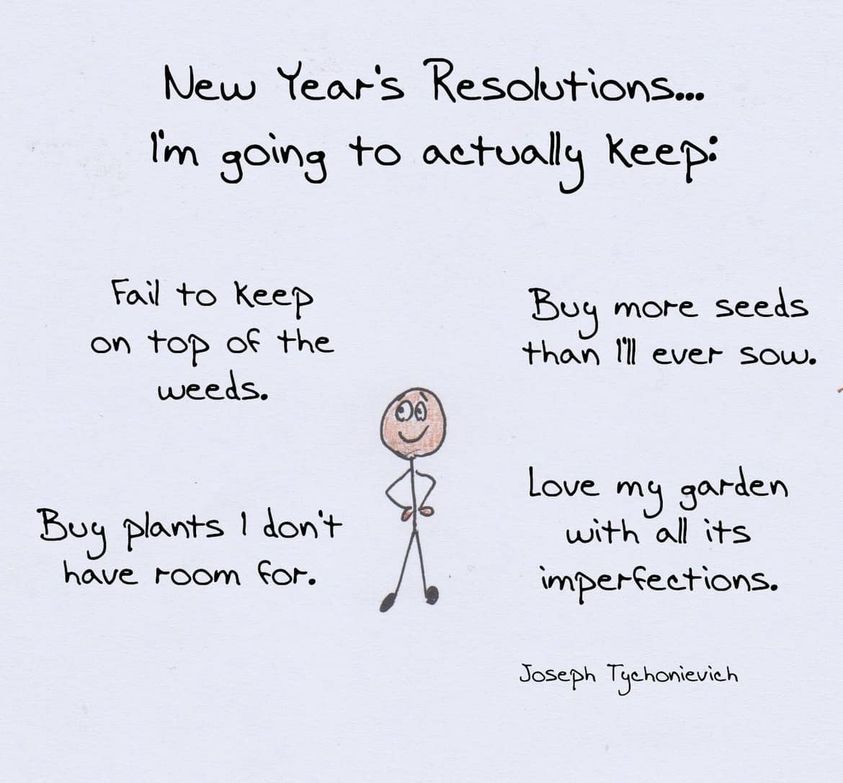 New Year's Resolutions...
I'm going to actually keep:
Fail to keep
on top of the
weeds.
Buy more seeds
than I'll ever sow.
Buy plants I don't
have room for.
Love my garden
with all its
imperfections.
Joseph Tychonievich